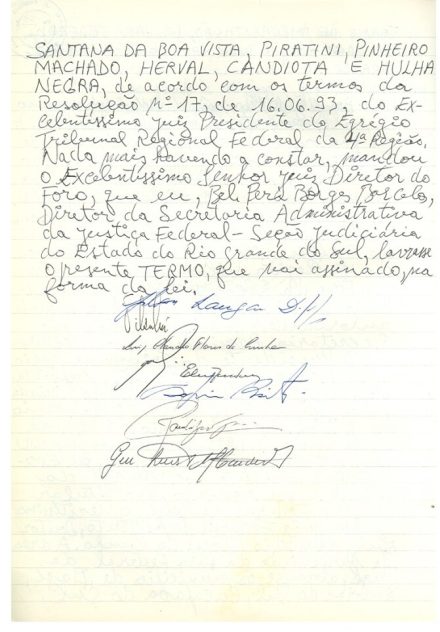 SANTANA DA BOA VISTA, PIRATINI, PINHEIRO
MACHADO, HERVAL, CANDIOTA E HULHA
NEGRA, de acordo com os termos da
Resolução nº 17, de 16.06.93, do Ex-
celentíssimo Juiz Presidente do Egrégio
Tribunal Regional Federal da 4ª Região.
Nada mais havendo a constar, mandou
o Excelentíssimo Senhor Juiz Diretor do
Foro, que eu, Bel. Borges Barcelos,
Diretor da Secretaria Administrativa
da Justiça Federal - Seção Judiciária
do Estado do Rio Grande do Sul, lavrasse
o presente TERMO, que vai assinado, na
forma da lei.